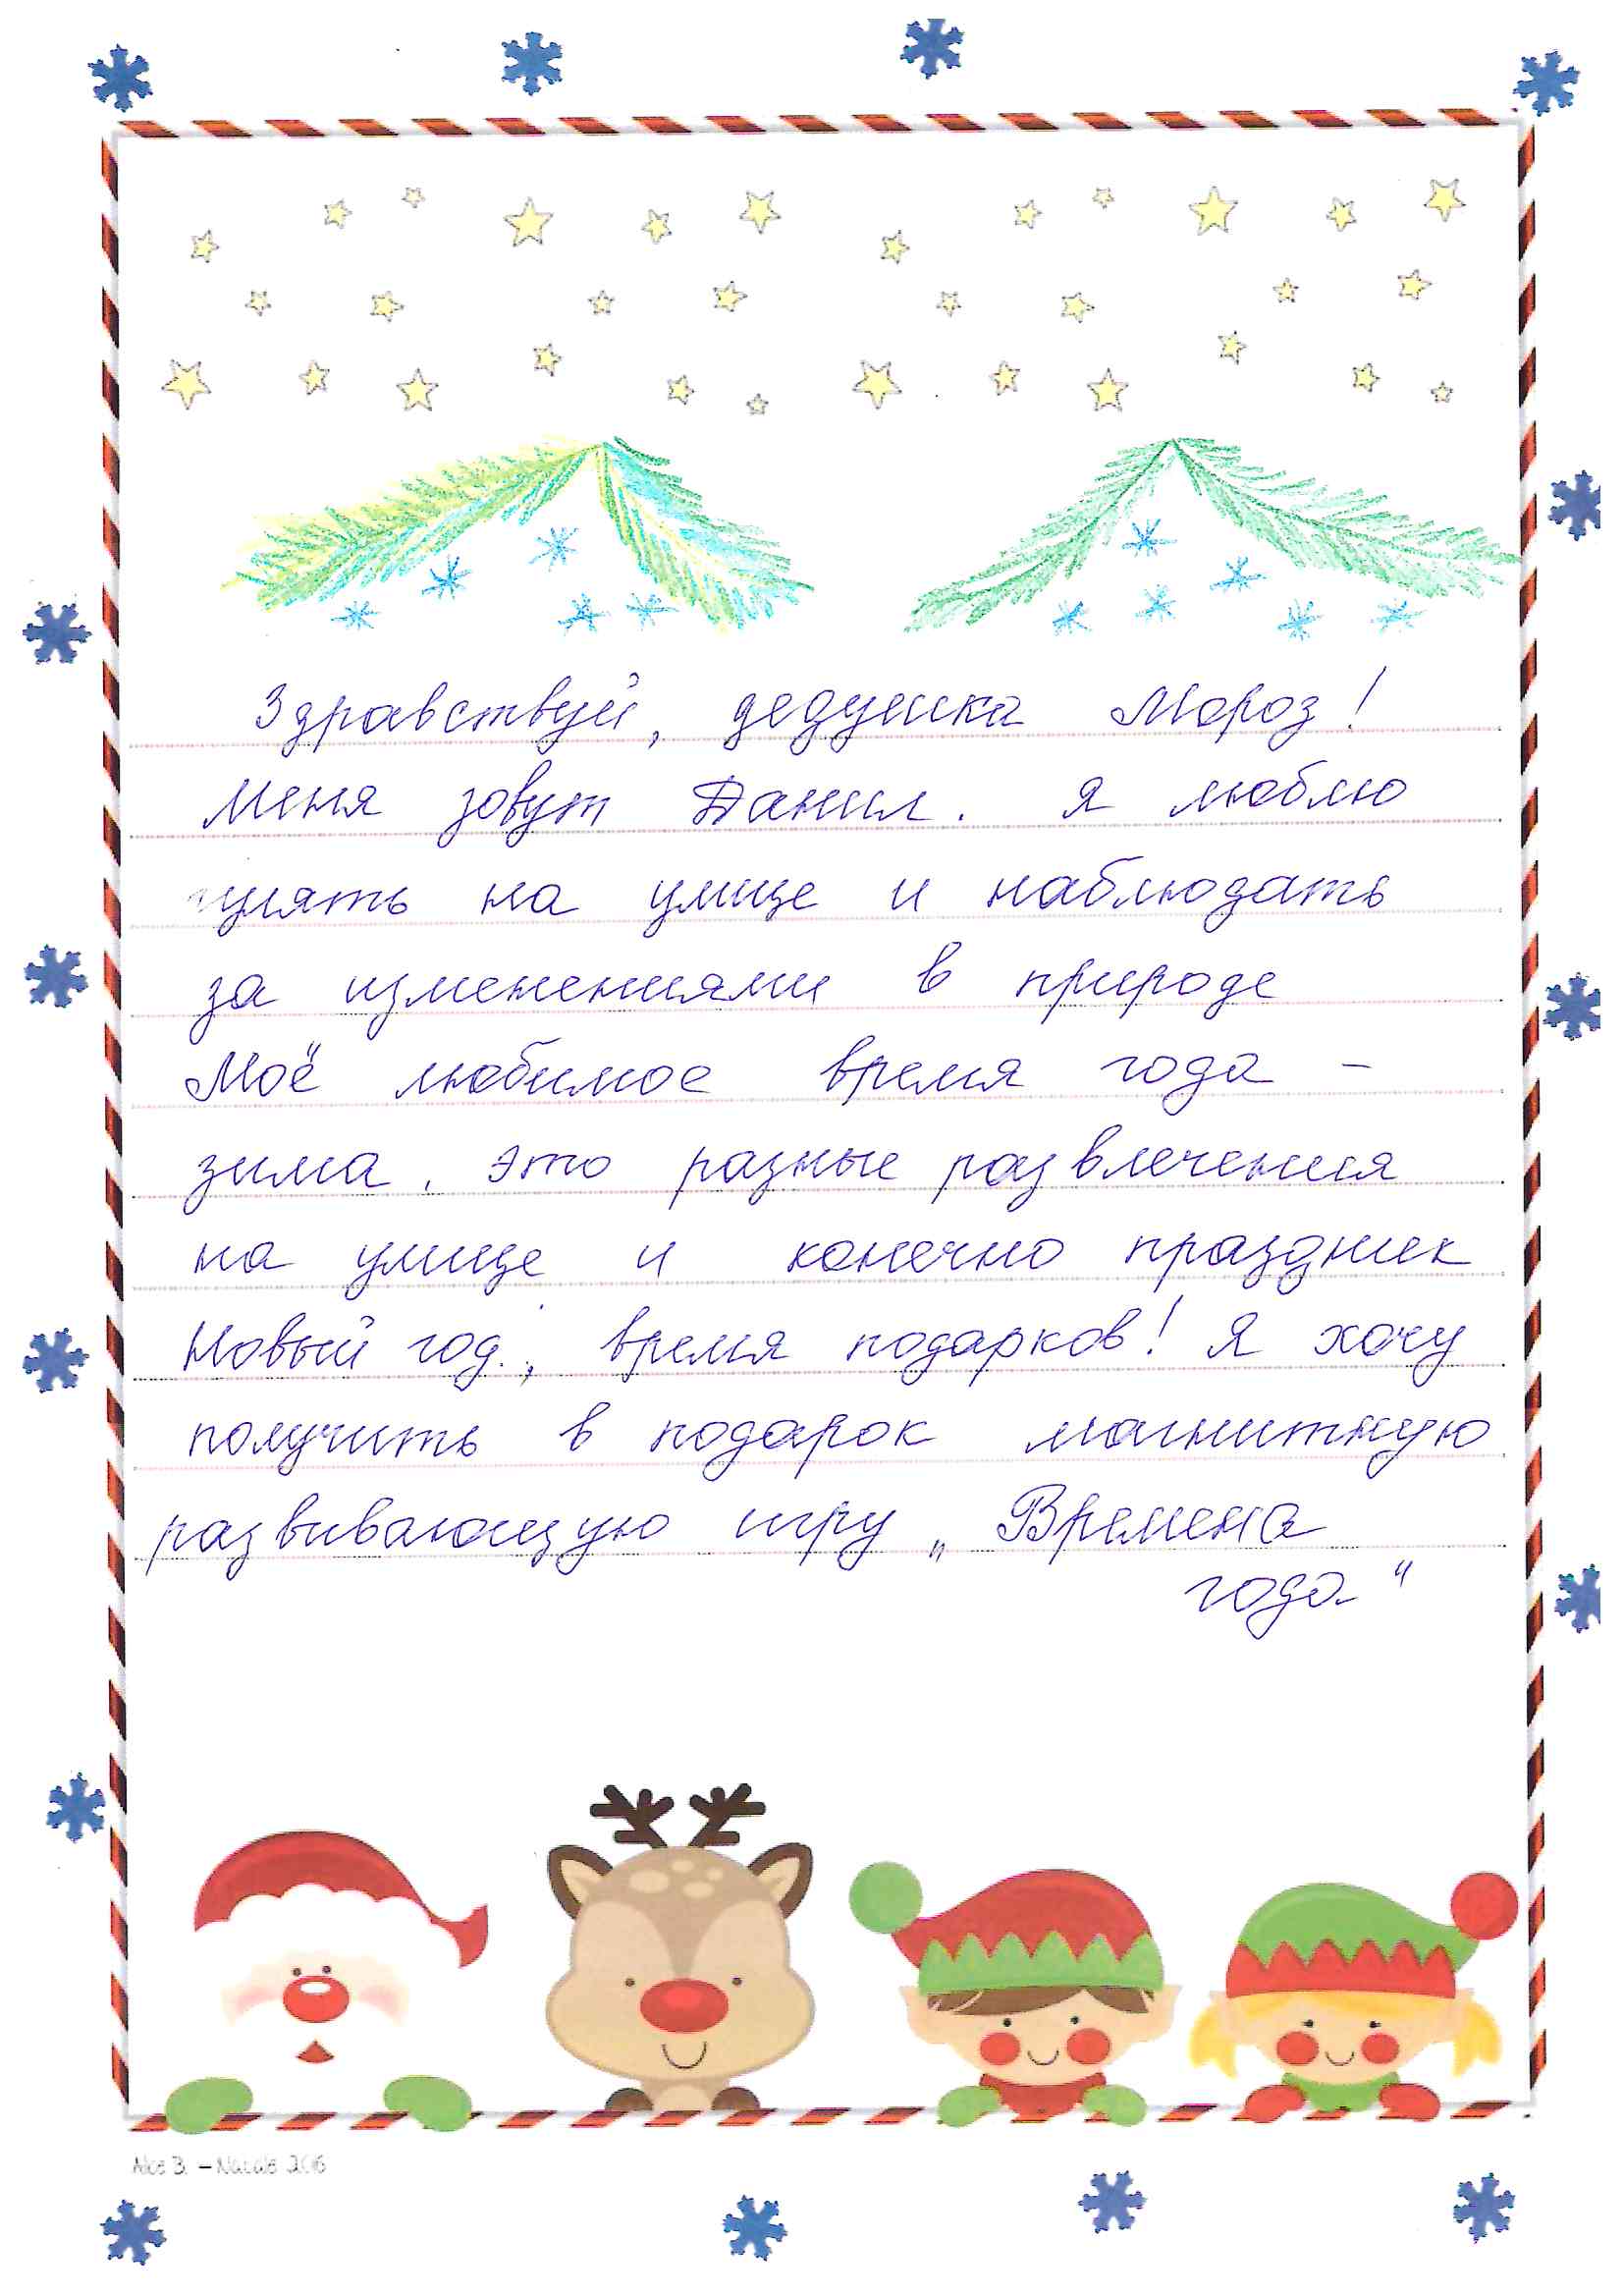 Здравствуй, дедушка Мороз!
Меня зовут Данил. Я люблю
гулять на улице и наблюдать
за изменениями в природе
Моё любимое время года –
зима. это разные развлечения
на улице и конечно праздник
Новый год., время подарков! Я хочу
получить в подарок магнитную
развивающую игру „Времена
года"
Alice B. – Natale 2016